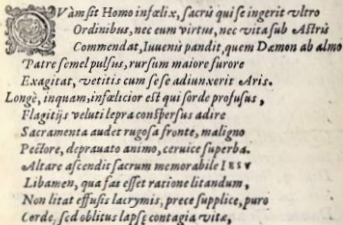 QVàm sit Homo infælix, sacris qui se ingerit vltro
Ordinibus, nec eum virtus, nec vita sub Astris
Commendat, Iuuenis pandit, quem Dæmon ab almo
Patre semel pulsus, rursum maiore furore
Exagitat, vetitis cum se se adiunxerit Aris.
Longè, inquam, infælicior est qui sorde profusus,
Flagitijs veluti lepra conspersus adire
Sacramenta audet rugosa fronte, maligno
Pectore, deprauato animo, ceruice superba.
Altare ascendit sacrum memorabile IESV
Libamen, qua fas esset ratione litandum,
Non litat effusis lacrymis, prece supplice, puro
Corde, sed oblitus lapsæ contagia vitæ,